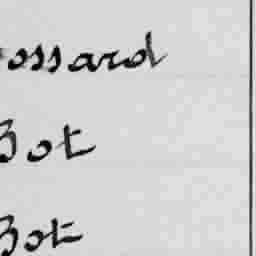 ossard
Bot
Bot